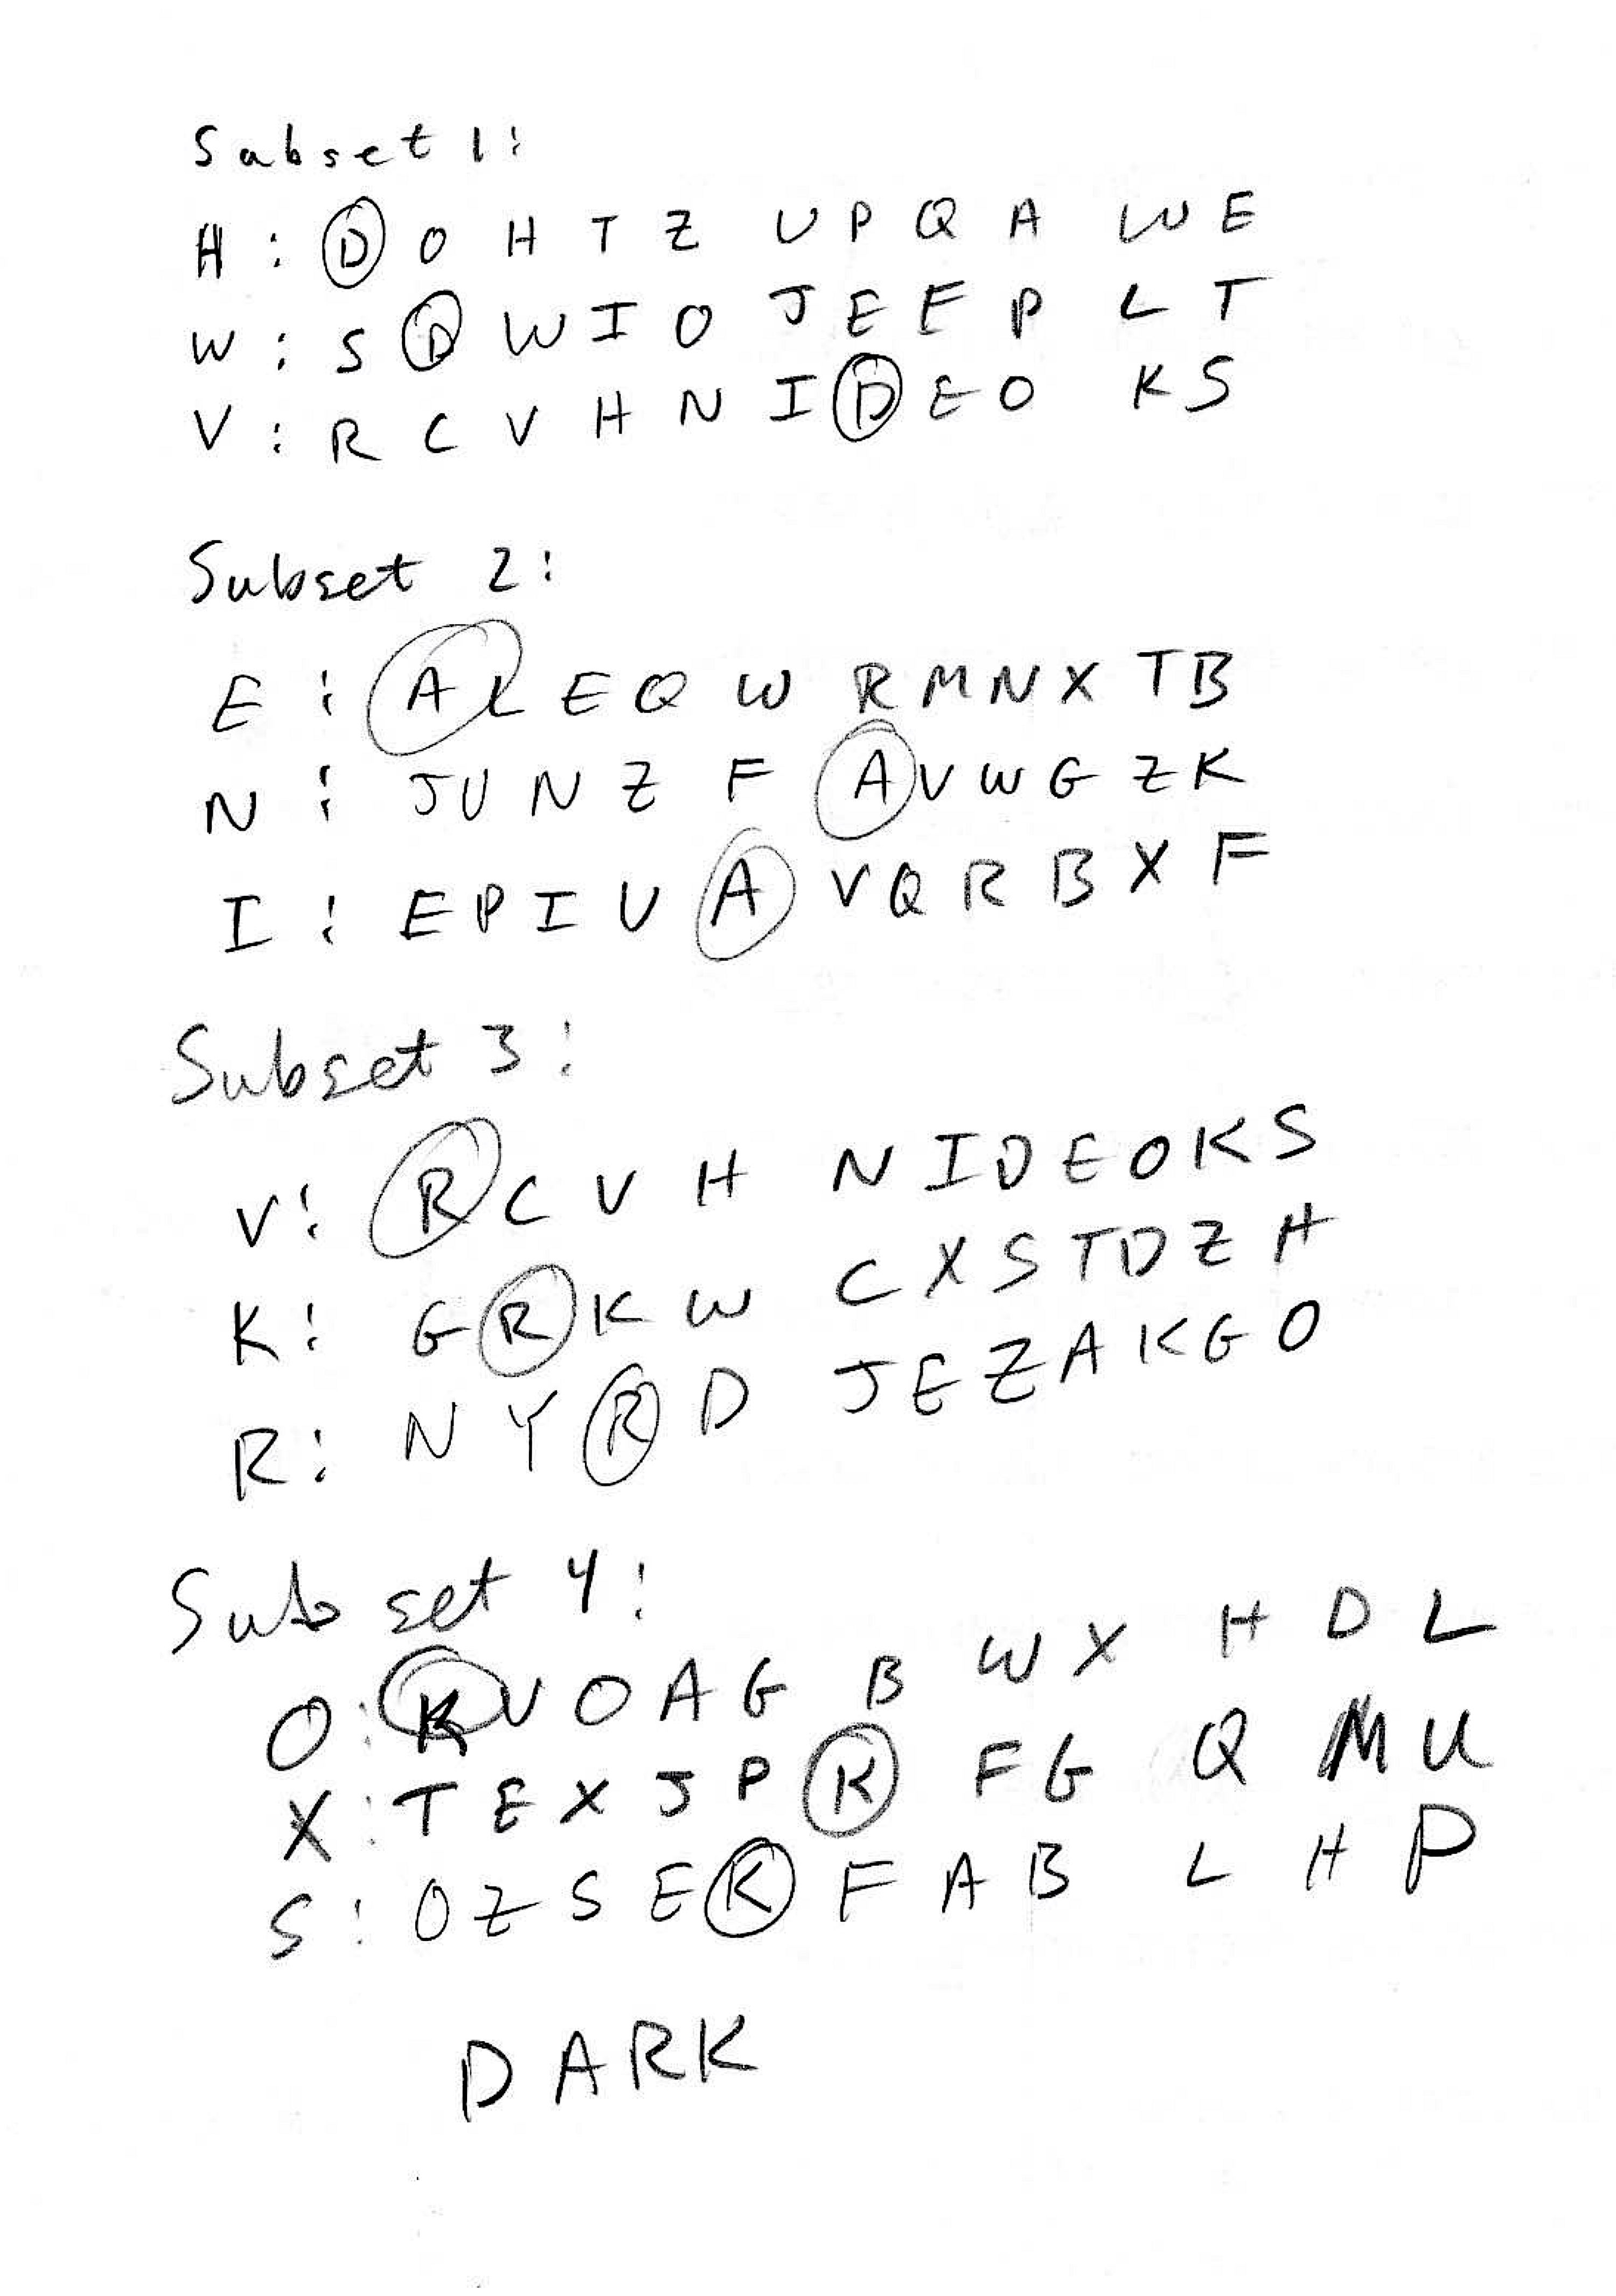 Subset 1:
H : D O H T Z U P Q A W E
W : S D W I O J E F P L T
V : R C V H N I D E O K S
Subset 2:
E : A L E Q W R M N X T B
N : J U N Z F A V W G Z K
I : E P I U A V Q R B X F
Subset 3:
V: R C V H N I D E O K S
K: G R K W C X S T D Z H
R: N Y R D J E Z A K G O
Subset 4:
O: K V O A G B W X H D L
X: T E X J P K F G Q M U
S: O Z S E K F A B L H P
DARK